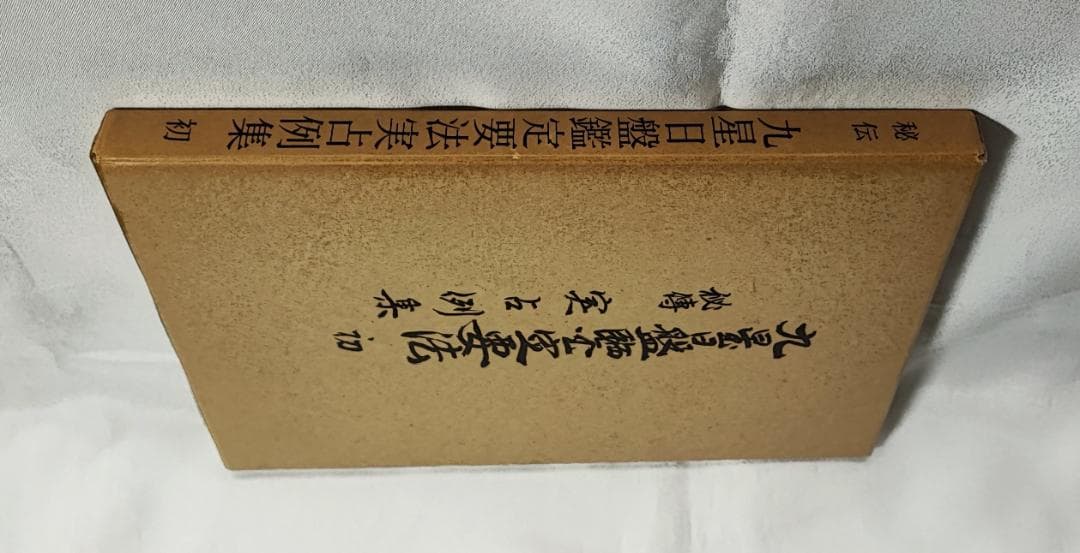 秘伝 九星日盤鑑定要法実占例集 初
秘傳 実占例集
九星日盤鑑定要法 初